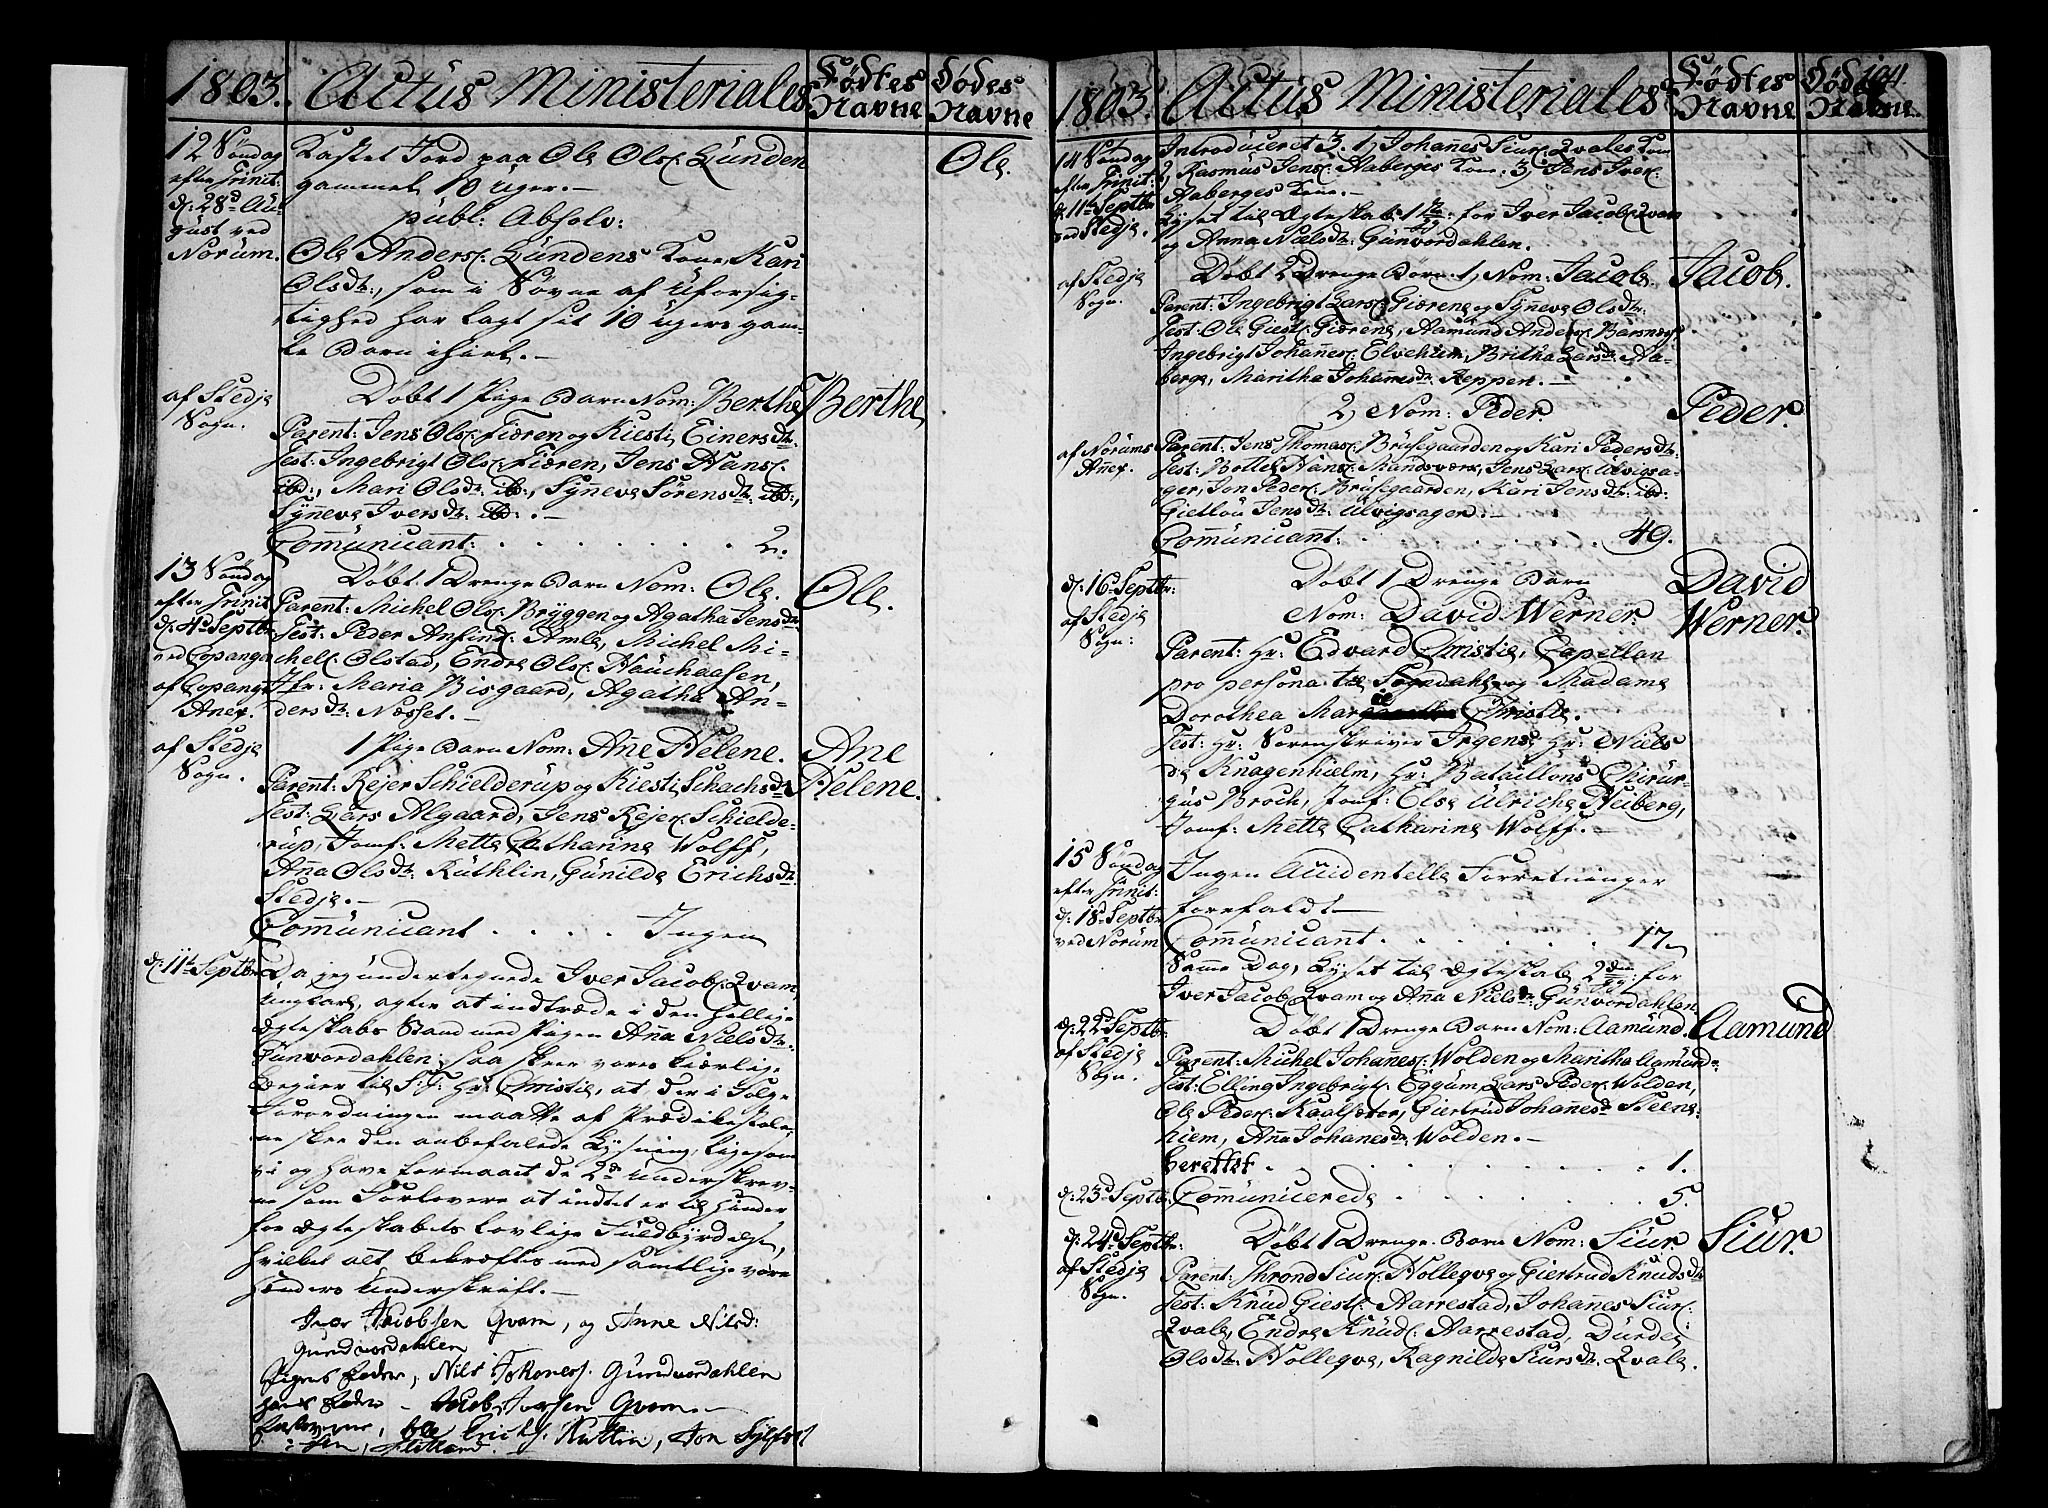 1803. Actus Ministeriales
Fødtes Navne
Dødes Navne
12 Søndag
efter Trinit:
d: 28d Au-
gust ved
Norum.
Kastet Jord paa Ole Ols: Lunden
gammel 10 Uger.-
Ole.
publ: Absolv:
Ole Anders: Lundens Kone, Kari
Olsdtr:, som i Søvne af Uforsig-
tighed har lagt sit 10 Uger gam-
le Barn ihiel.-
af Stedje
Sogn.
Døbt 1 Pige Barn Nom: Berthe
Berthe
Parent: Jens Ols: Fiæren og Kiesti Einersdtr:
Test: Ingebrigt Ols: Fiæren, Jens Hans:
ibd:, Mari Olsdtr: ibd:, Synneva Sørensdtr: ibd:,
Synneva Iversdtr: ibd:.-
Communicant: . . . . . . . 2.
13 Søndag
efter Trinit
d: 4de Septbr:
ved Copanger
af Copangs
Anex.
Døbt 1 Drenge Barn Nom: Ole.
Ole.
Parent: Michel Ols: Bryggen og Agatha Jensdtr:
Test: Peder Anfinds: Amla, Michel Mi-
chels: Olstad, Endre Ols: Hauchaasen,
Jfr: Maria Bisgaard, Agatha An-
dersdtr: Næsset.-
af Stedje
Sogn.
1 Pige Barn Nom: Anne Helene.
Ane
Helene.
Parent: Rejer Schielderup og Kiesti Schachsdtr:
Test: Lars Algaard, Jens Rejer: Schielde-
rup, Jomf: Mette Catharina Wolff,
Anna Olsdtr: Ruthlin, Gunilda Erichsdtr:
Stedje.-
Communicant . . . . Ingen
d: 11te Septbr:
Da jeg undertegnede Iver Jacobs: Qvam,
Ungkarl, agter at indtræde i den hellige
Ægteskabs Stand med Pigen Anna Nielsdtr:
Gunvordahlen; saa skeer vores kiærlige
Begiær til S: T: Hr: Christie, at der i Følge
Forordningen maatte af Prædikestole-
ne skee den anbefalede Lysning, ligesom
vi og have formaaet de 2de underskrev-
ne som Forlovere at indtet er til Hinder
for Ægteskabets lovlige Fuldbyrdelse,
hvilket alt bekræftes med samtlige vore
Hænders Underskrift.-
Iver Jacobsen Qvam, og Anne Nilsd:
Gundvordahlen
Pigens Fader, Nils Johaness: Gundvordahlen
hans Fader - Jacob Iversen Qvam -
Forloverne, Ole Erichs: Ruttlin, Jon Sylfest
1803. Actus Ministeriales
Fødtes Navne
Dødes Navne.
194.
14 Søndag
efter Trinit:
d: 11te Septbr
ved Stedje.
Introduceret 3. 1, Johannes Siurs: Qvales Kone
2, Rasmus Jens: Aaberges Kone. 3, Jens Iver:
Aaberges Kone.-
Lyset til Ægteskab 1ste Gg: for Iver Jacobs: Qvam
og Anna Nielsdtr: Gunvordahlen.
af Stedje
Sogn.
Døbt 2 Drenge Børn. 1, Nom: Jacob.
Jacob.
Parent: Ingebrigt Lars: Giærene og Synneva Olsdtr:
Test: Ole Giest: Giærene, Aamund Anders: Barsnæs,
Ingebrigt Johannes: Elvehiem, Britha Larsdtr: Aa-
berge, Maritha Johannesdtr: Reppen.-
2, Nom: Peder.
Peder.
af Norums
Anex.
Parent: Jens Thomas: Brusegaarden og Kari Pedersdtr:
Test: Bottel Hans: Mundsværk, Jens Lars: Ulvigsa-
ger, Jon Peder: Brusegaarden, Kari Jensdtr: ibd:
Gietlou Jensdtr: Ulvigsager.-
Communicant: . . . . . . . 49.
d: 16de Septbr:
af Stedje
Sogn:
Døbt 1 Drenge Barn
Nom: David Werner.
David
Werner.
Parent: Hr: Edvard Christie, Capellan
pro persona til Sogndahl og Madame
Dorothea Christie.
Test: Hr: Sorenskriver Irgens, Hr: Niels
de Knagenhielm, Hr: Bataillons Chirur-
gus Broch, Jomf: Else Ulricha Heiberg,
Jomf: Mette Catharina Wolff.-
15 Søndag
efter Trinit:
d: 18de Septbr
ved Norum
Ingen Accidentelle Forretninger
forefaldt.-
Communicant . . . . . . 17.
Samme Dag, Lyset til Ægteskab 2den Gg: for
Iver Jacobs: Qvam og Anna Nielsdtr: Gunvordahlen.
d: 22d Septbr:
af Stedje
Sogn.
Døbt 1 Drenge Barn Nom: Aamund.
Aamund
Parent: Michel Johanes: Wolden og Maritha Aamundsdtr:
Test: Elling Ingebrigts: Eggum, Lars Peder: Wolden,
Ole Peder: Kaalsæter, Giertrud Johannesdtr: Steene-
hiem, Anna Johanesdtr: Wolden.-
berettet . . . . . . . . 1.
d: 23d Septbr:
Communicerede . . . . . . 5.
d: 24d Septbr:
af Stedje
Sogn.
Døbt 1 Drenge Barn Nom: Siur.
Siur.
Parent: Thrond Siur: Hollegva og Giertrud Knudsdtr:
Test: Knud Giest: Aarrestad, Johannes Siurs:
Qvale, Endre Knud: Aarrestad, Durdei
Olsdtr: Hollegva, Ragnilda Siursdtr: Qvale.